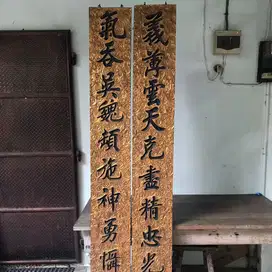 義薄雲天克盡精忠光
氣吞吳魏頻施神勇懾